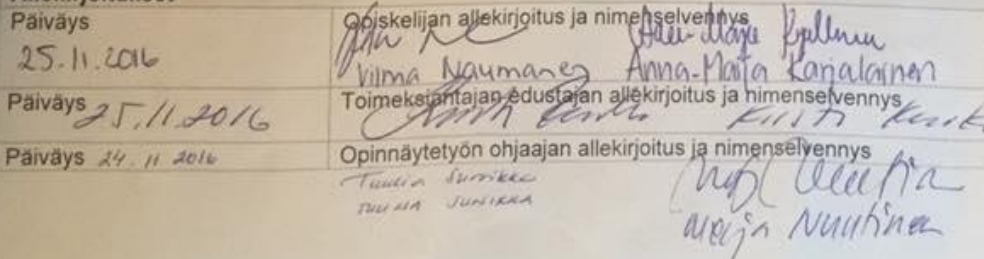 Päiväys
Opiskelijan allekirjoitus ja nimenselvennys
25.11.2016
Vilma Naumanen Anna-Maija Karjalainen
Päiväys 25.11.2016
Toimeksiantajan edustajan allekirjoitus ja nimenselvennys
Kirsti
Päiväys 24.11.2016
Opinnäytetyön ohjaajan allekirjoitus ja nimenselvennys
Tuulia Sunikka
TUULIA SUNIKKA
Merja Nuutinen